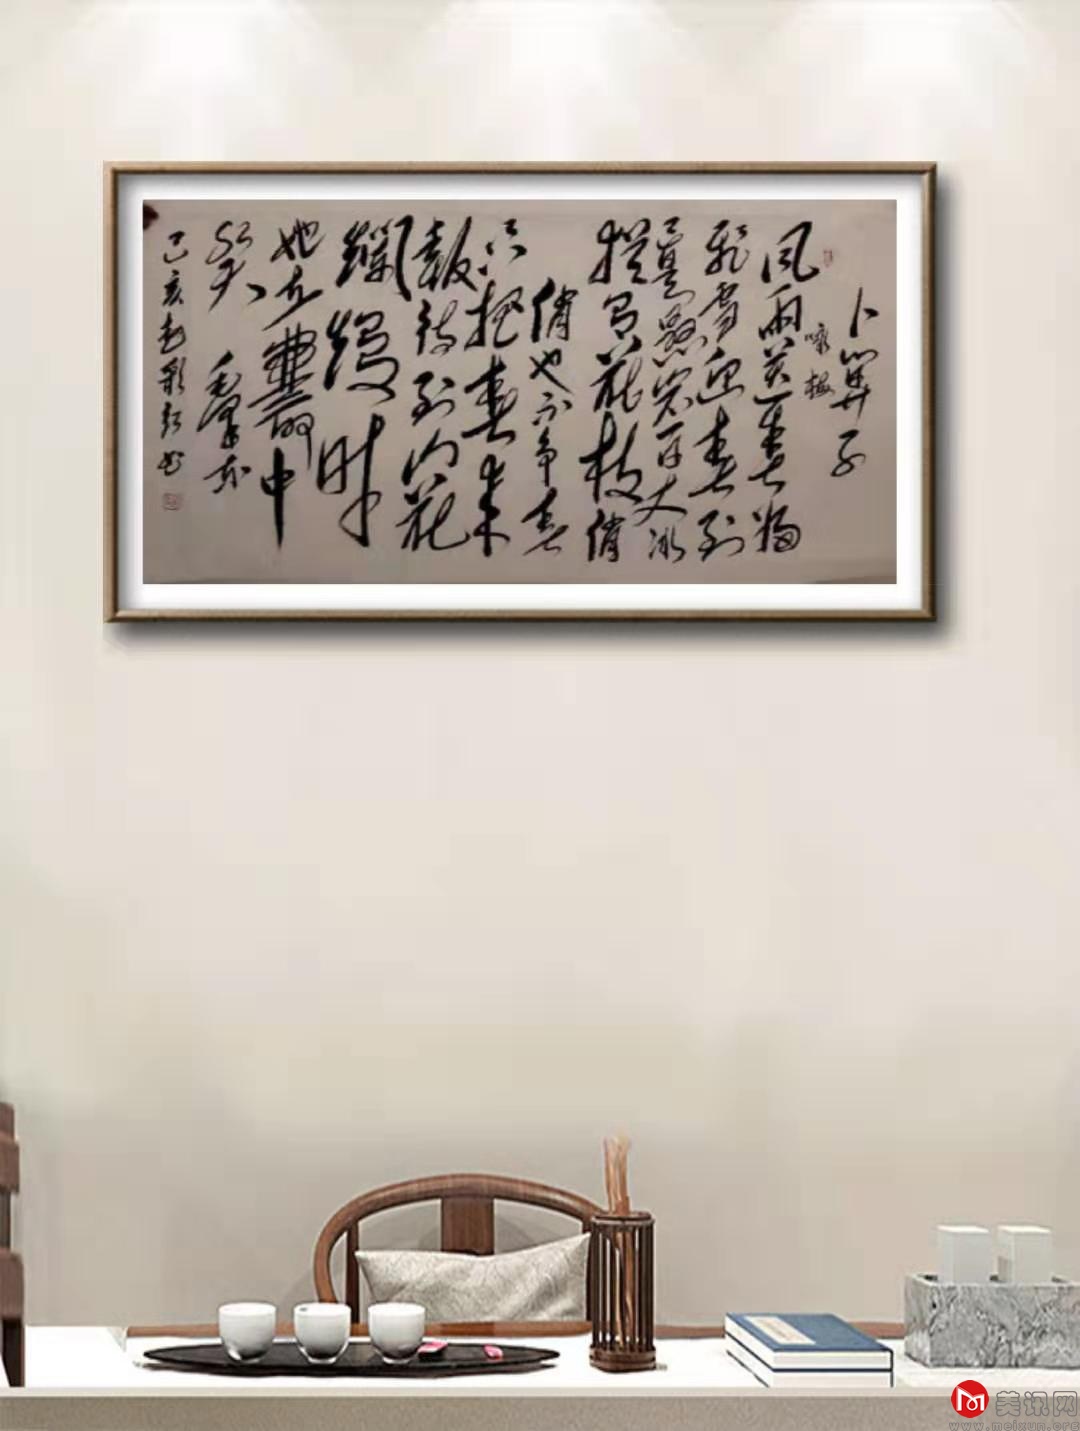 卜算子
咏梅
风雨送春归
飞雪迎春到
已是悬崖百丈冰
犹有花枝俏
俏也不争春
只把春来
報待到山花
爛漫时
她在叢中
笑 毛泽东
己亥 书
美讯网
www.meixun.org